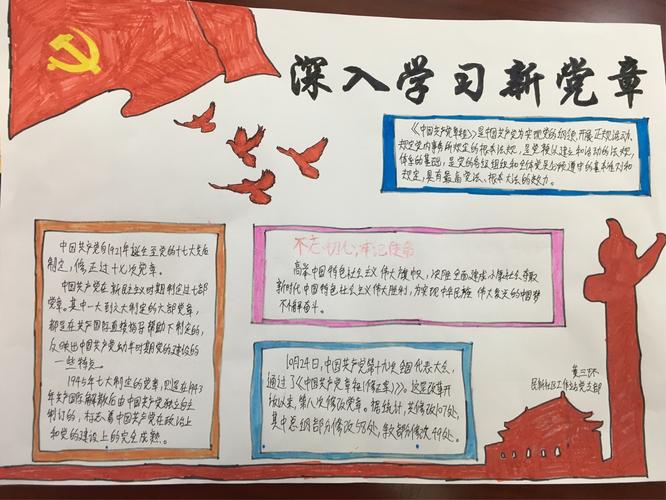 深入学习新党章
《中国共产党章程》是中国共产党为实现党的纲领、开展正规活动、
规定党内事务所规定的根本法规，是党赖以建立和活动的法规
体系的基础，是党的各级组织和全体党员必须遵守的基本准则和
规定，具有最高党法、根本大法的效力。
中国共产党自1921年诞生至党的十七大先后
制定、修正过十七次党章。
中国共产党在新民主主义时期制定过七部
党章。其中一大到六大制定的六部党章，
都是在共产国际直接指导帮助下制定的，
反映出中国共产党幼年时期党的建设的
一些特点。
1945年七大制定的党章，是在1943
年共产国际解散后由中国共产党独立自主
制订的，标志着中国共产党在政治上
和党的建设上的完全成熟。
不忘初心，牢记使命
高举中国特色社会主义伟大旗帜，决胜全面建成小康社会夺取
新时代中国特色社会主义伟大胜利，为实现中华民族伟大复兴的中国梦
不懈奋斗。
10月24日，中国共产党第十九次全国代表大会
通过了《中国共产党章程（修正案）》。这是改革开
放以来，第八次修改党章。据统计，共修改107处，
其中总纲部分修改58处，条文部分修改49处。
民新社区工作站党支部